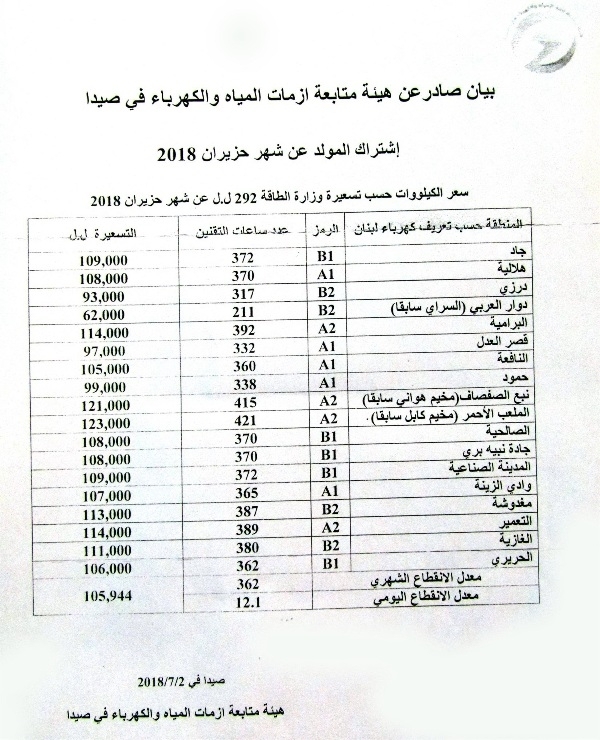 بيان صادر عن هيئة متابعة ازمات المياه والكهرباء في صيدا
إشتراك المولد عن شهر حزيران 2018
سعر الكيلووات حسب تسعيرة وزارة الطاقة 292 ل.ل عن شهر حزيران 2018
المنطقة حسب تعريف كهرباء لبنان الرمز عدد ساعات التقنين التسعيرة ل.ل
جاد B1 372 109,000
هلالية A1 370 108,000
درزي B2 317 93,000
دوار العربي (السراي سابقا) B2 211 62,000
البرامية A2 392 114,000
قصر العدل A1 332 97,000
النافعة A1 360 105,000
حمود A1 338 99,000
نبع الصفصاف(مخيم هواني سابقا) A2 415 121,000
الملعب الأحمر (مخيم كابل سابقا). A2 421 123,000
الصالحية B1 370 108,000
جادة نبيه بري B1 370 108,000
المدينة الصناعية B1 372 109,000
وادي الزينة A1 365 107,000
مغدوشة B2 387 113,000
التعمير A2 389 114,000
الغازية B2 380 111,000
الحريري B1 362 106,000
معدل الانقطاع الشهري 362
105,944
معدل الانقطاع اليومي 12.1
صيدا في 2018/7/2
هيئة متابعة ازمات المياه والكهرباء في صيدا